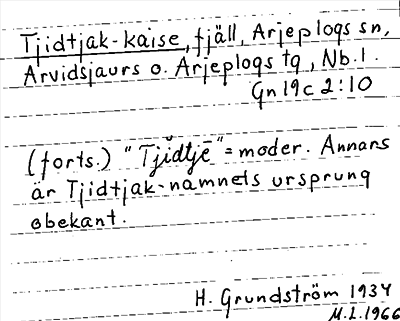 Tjidtjak-kaise, fjäll, Arjeplogs sn,
Arvidsjaurs o. Arjeplogs tg, Nb.l.
Gn 19c 2:10
(forts.) "Tjĭdtjē" = moder. Annars
är Tjidtjak-namnets ursprung
obekant.
H. Grundström 1934
M.L. 1966